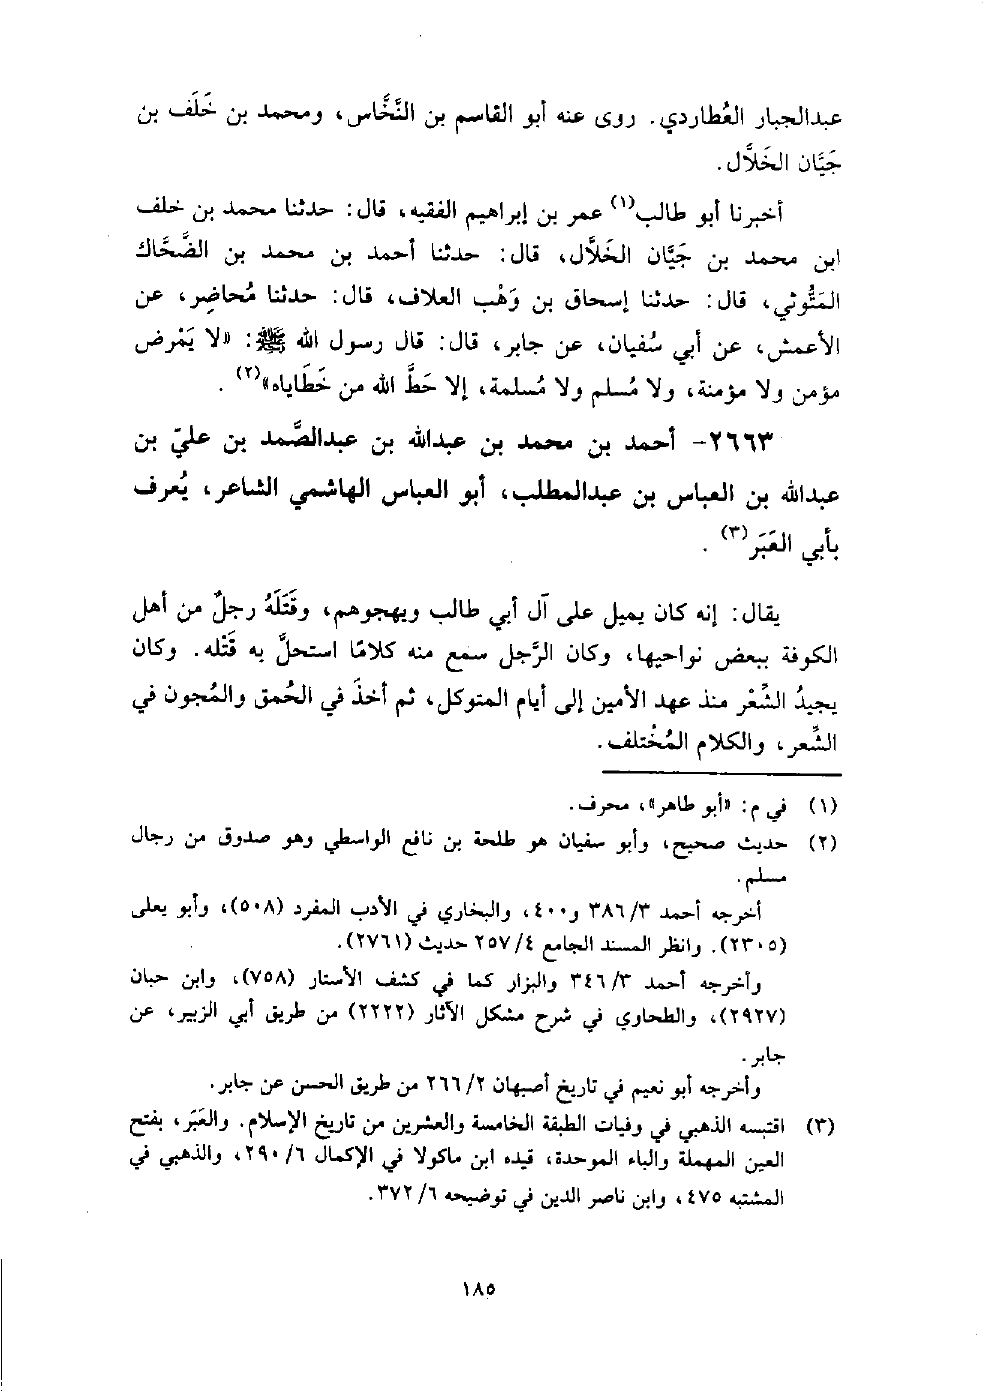 عبدالجبار العُطاردي. روى عنه أبو القاسم بن النَّخَّاس، ومحمد بن خَلَف بن
جَيَّان الخَلاَّل.
أخبرنا أبو طالب(١) عمر بن إبراهيم الفقيه، قال: حدثنا محمد بن خلف
ابن محمد بن جَيَّان الخَلاَّل، قال: حدثنا أحمد بن محمد بن الضَّحَّاك
المَتُّوثي، قال: حدثنا إسحاق بن وَهْب العلاف، قال: حدثنا مُحاضِر، عن
الأعمش، عن أبي سُفيان، عن جابر، قال: قال رسول الله ﷺ: «لا يَمْرض
مؤمن ولا مؤمنة، ولا مُسلم ولا مُسلمة، إلا حَطَّ الله من خَطَاياه»(٢).
٢٦٦٣- أحمد بن محمد بن عبدالله بن عبدالصَّمد بن عليّ بن
عبدالله بن العباس بن عبدالمطلب، أبو العباس الهاشمي الشاعر، يُعرف
بأبي العَبَر(٣).
يقال: إنه كان يميل على آل أبي طالب ويهجوهم، وقَتَلَهُ رجلٌ من أهل
الكوفة ببعض نواحيها، وكان الرَّجل سمع منه كلامًا استحلَّ به قَتْله. وكان
يجيدُ الشِّعْر منذ عهد الأمين إلى أيام المتوكل، ثم أخذَ في الحُمق والمُجون في
الشِّعر، والكلام المُخْتلف.
(١) في م: «أبو طاهر»، محرف.
(٢) حديث صحيح، وأبو سفيان هو طلحة بن نافع الواسطي وهو صدوق من رجال
مسلم.
أخرجه أحمد ٣/ ٣٨٦ و٤٠٠، والبخاري في الأدب المفرد (٥٠٨)، وأبو يعلى
(٢٣٠٥). وانظر المسند الجامع ٤/ ٢٥٧ حديث (٢٧٦١).
وأخرجه أحمد ٣/ ٣٤٦ والبزار كما في كشف الأستار (٧٥٨)، وابن حبان
(٢٩٢٧)، والطحاوي في شرح مشكل الآثار (٢٢٢٢) من طريق أبي الزبير، عن
جابر.
وأخرجه أبو نعيم في تاريخ أصبهان ٢/ ٢٦٦ من طريق الحسن عن جابر.
(٣) اقتبسه الذهبي في وفيات الطبقة الخامسة والعشرين من تاريخ الإسلام. والعَبَر، بفتح
العين المهملة والباء الموحدة، قيده ابن ماكولا في الإكمال ٦/ ٢٩٠، والذهبي في
المشتبه ٤٧٥، وابن ناصر الدين في توضيحه ٦/ ٣٧٢.
١٨٥